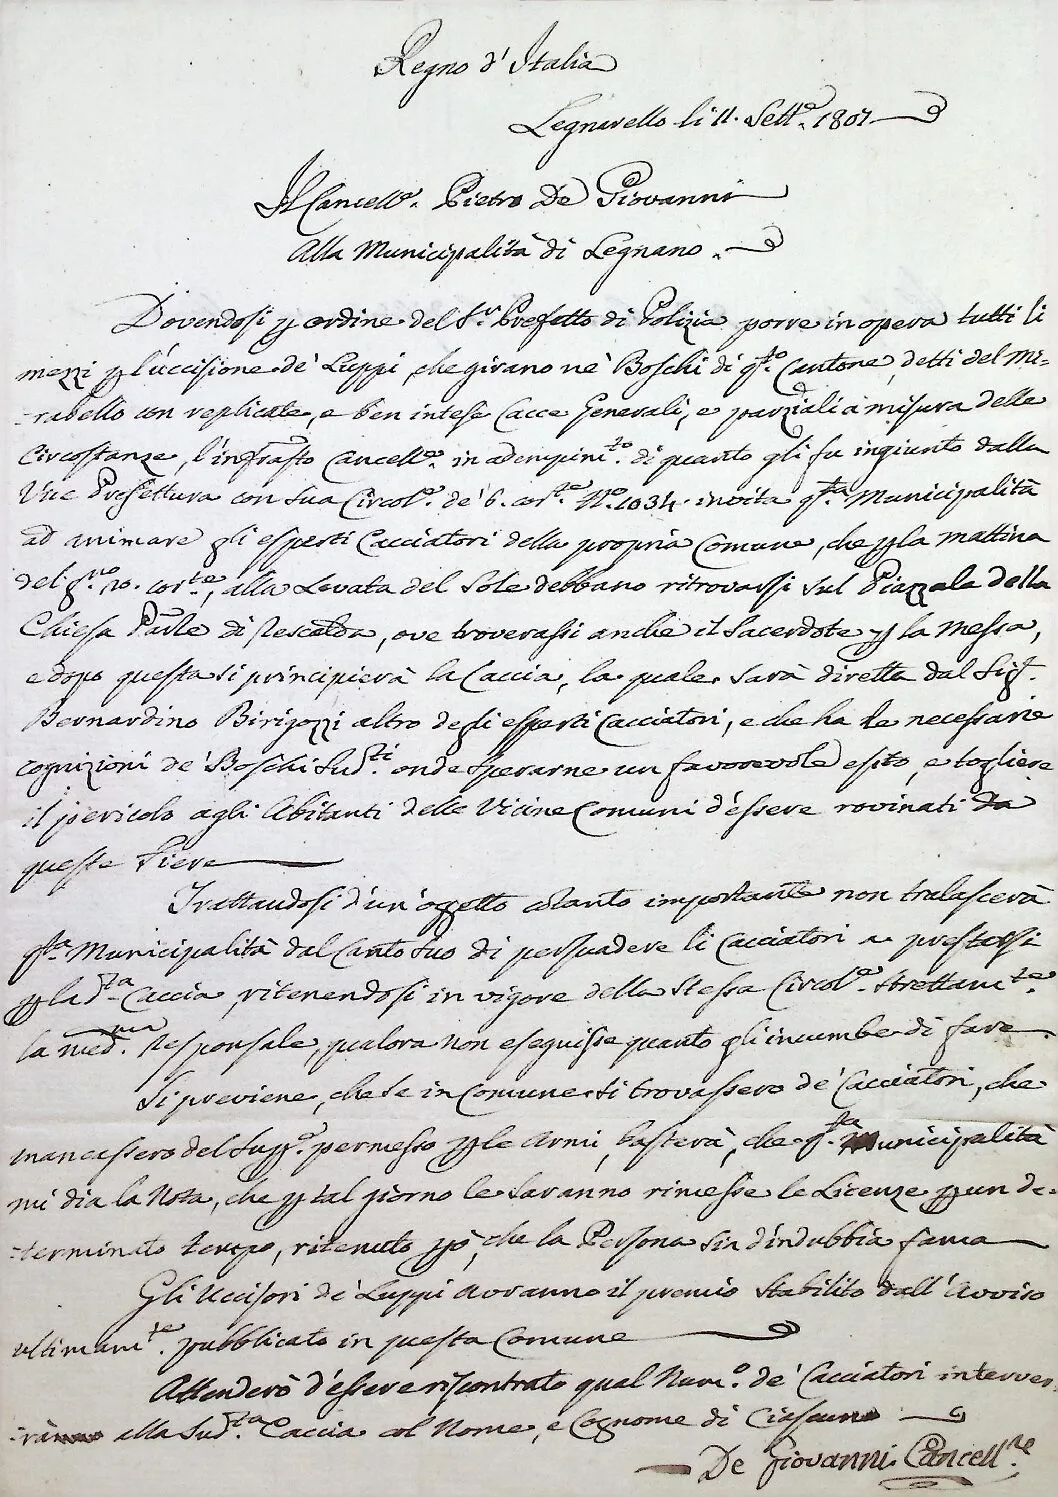 Regno d'Italia
Legnarello li 11. Sett.e 1807
Il Cancell.e Pietro De Giovanni
Alla Municipalità di Legnano.
Dovendosi p ordine del S.r Prefetto di Polizia porre in opera tutti li
mezzi p l'uccisione de' Luppi, che girano ne' Boschi di q.to Cantone, detti del Mi-
-rabello con replicate, e ben intese Cacce Generali, e parziali a misura delle
Circostanze, l'infrasto Cancell.e in adempim.to di quanto gli fu ingiunto dalla
Vice Prefettura con sua Circol.e de' 6. cor.te N.o 1034. invita q.ta Municipalità
ad animare gli esperti Cacciatori della propria Comune, che p la mattina
del g.no 20. cor.te, alla Levata del Sole debbano ritrovarsi sul Piazzale della
Chiesa Parle di Rescalda, ove troverassi anche il Sacerdote p la Messa,
e dopo questa si principierà la Caccia, la quale sarà diretta dal Sig.
Bernardino Birigozzi altro degli esperti Cacciatori, e che ha le necessarie
cognizioni de' Boschi sud.ti onde sperarne un favorevole esito, e togliere
il pericolo agli Abitanti delle Vicine Comuni d'essere rovinati da
queste Fiere
Trattandosi d'un'oggetto cotanto importante non tralascerà
q.ta Municipalità dal Canto suo di persuadere li Cacciatori a prestarsi
p la d.ta Caccia, ritenendosi in vigore della stessa Circol.e strettam.te
la med.ma Responsale, qualora non eseguisse quanto gli incumbe di fare.
Si previene, che se in Comune si trovassero de' Cacciatori, che
mancassero del sup.o permesso p le Armi, basterà, che q.ta Municipalità
mi dia la Nota, che p tal giorno le saranno rimesse le Licenze p un de-
-terminato tempo, ritenuto pò, che la Persona sia d'indubbia fama
Gli Uccisori de' Luppi avranno il premio stabilito dall'Avviso
ultimam.te pubblicato in questa Comune
Attenderò d'essere riscontrato qual Num.o de' Cacciatori interver-
-rà alla Sud.ta Caccia col Nome, e Cognome di Ciascuno
De Giovanni Cancell.re